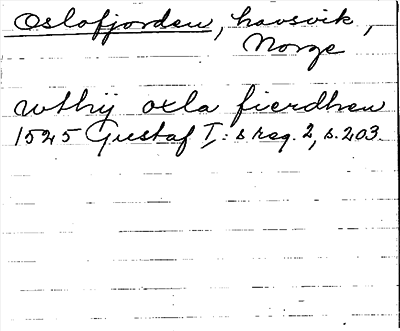 Oslofjorden, havsvik,
Norge
wthij oxla fierdhen
1525 Gustaf I:s reg. 2, s. 203.